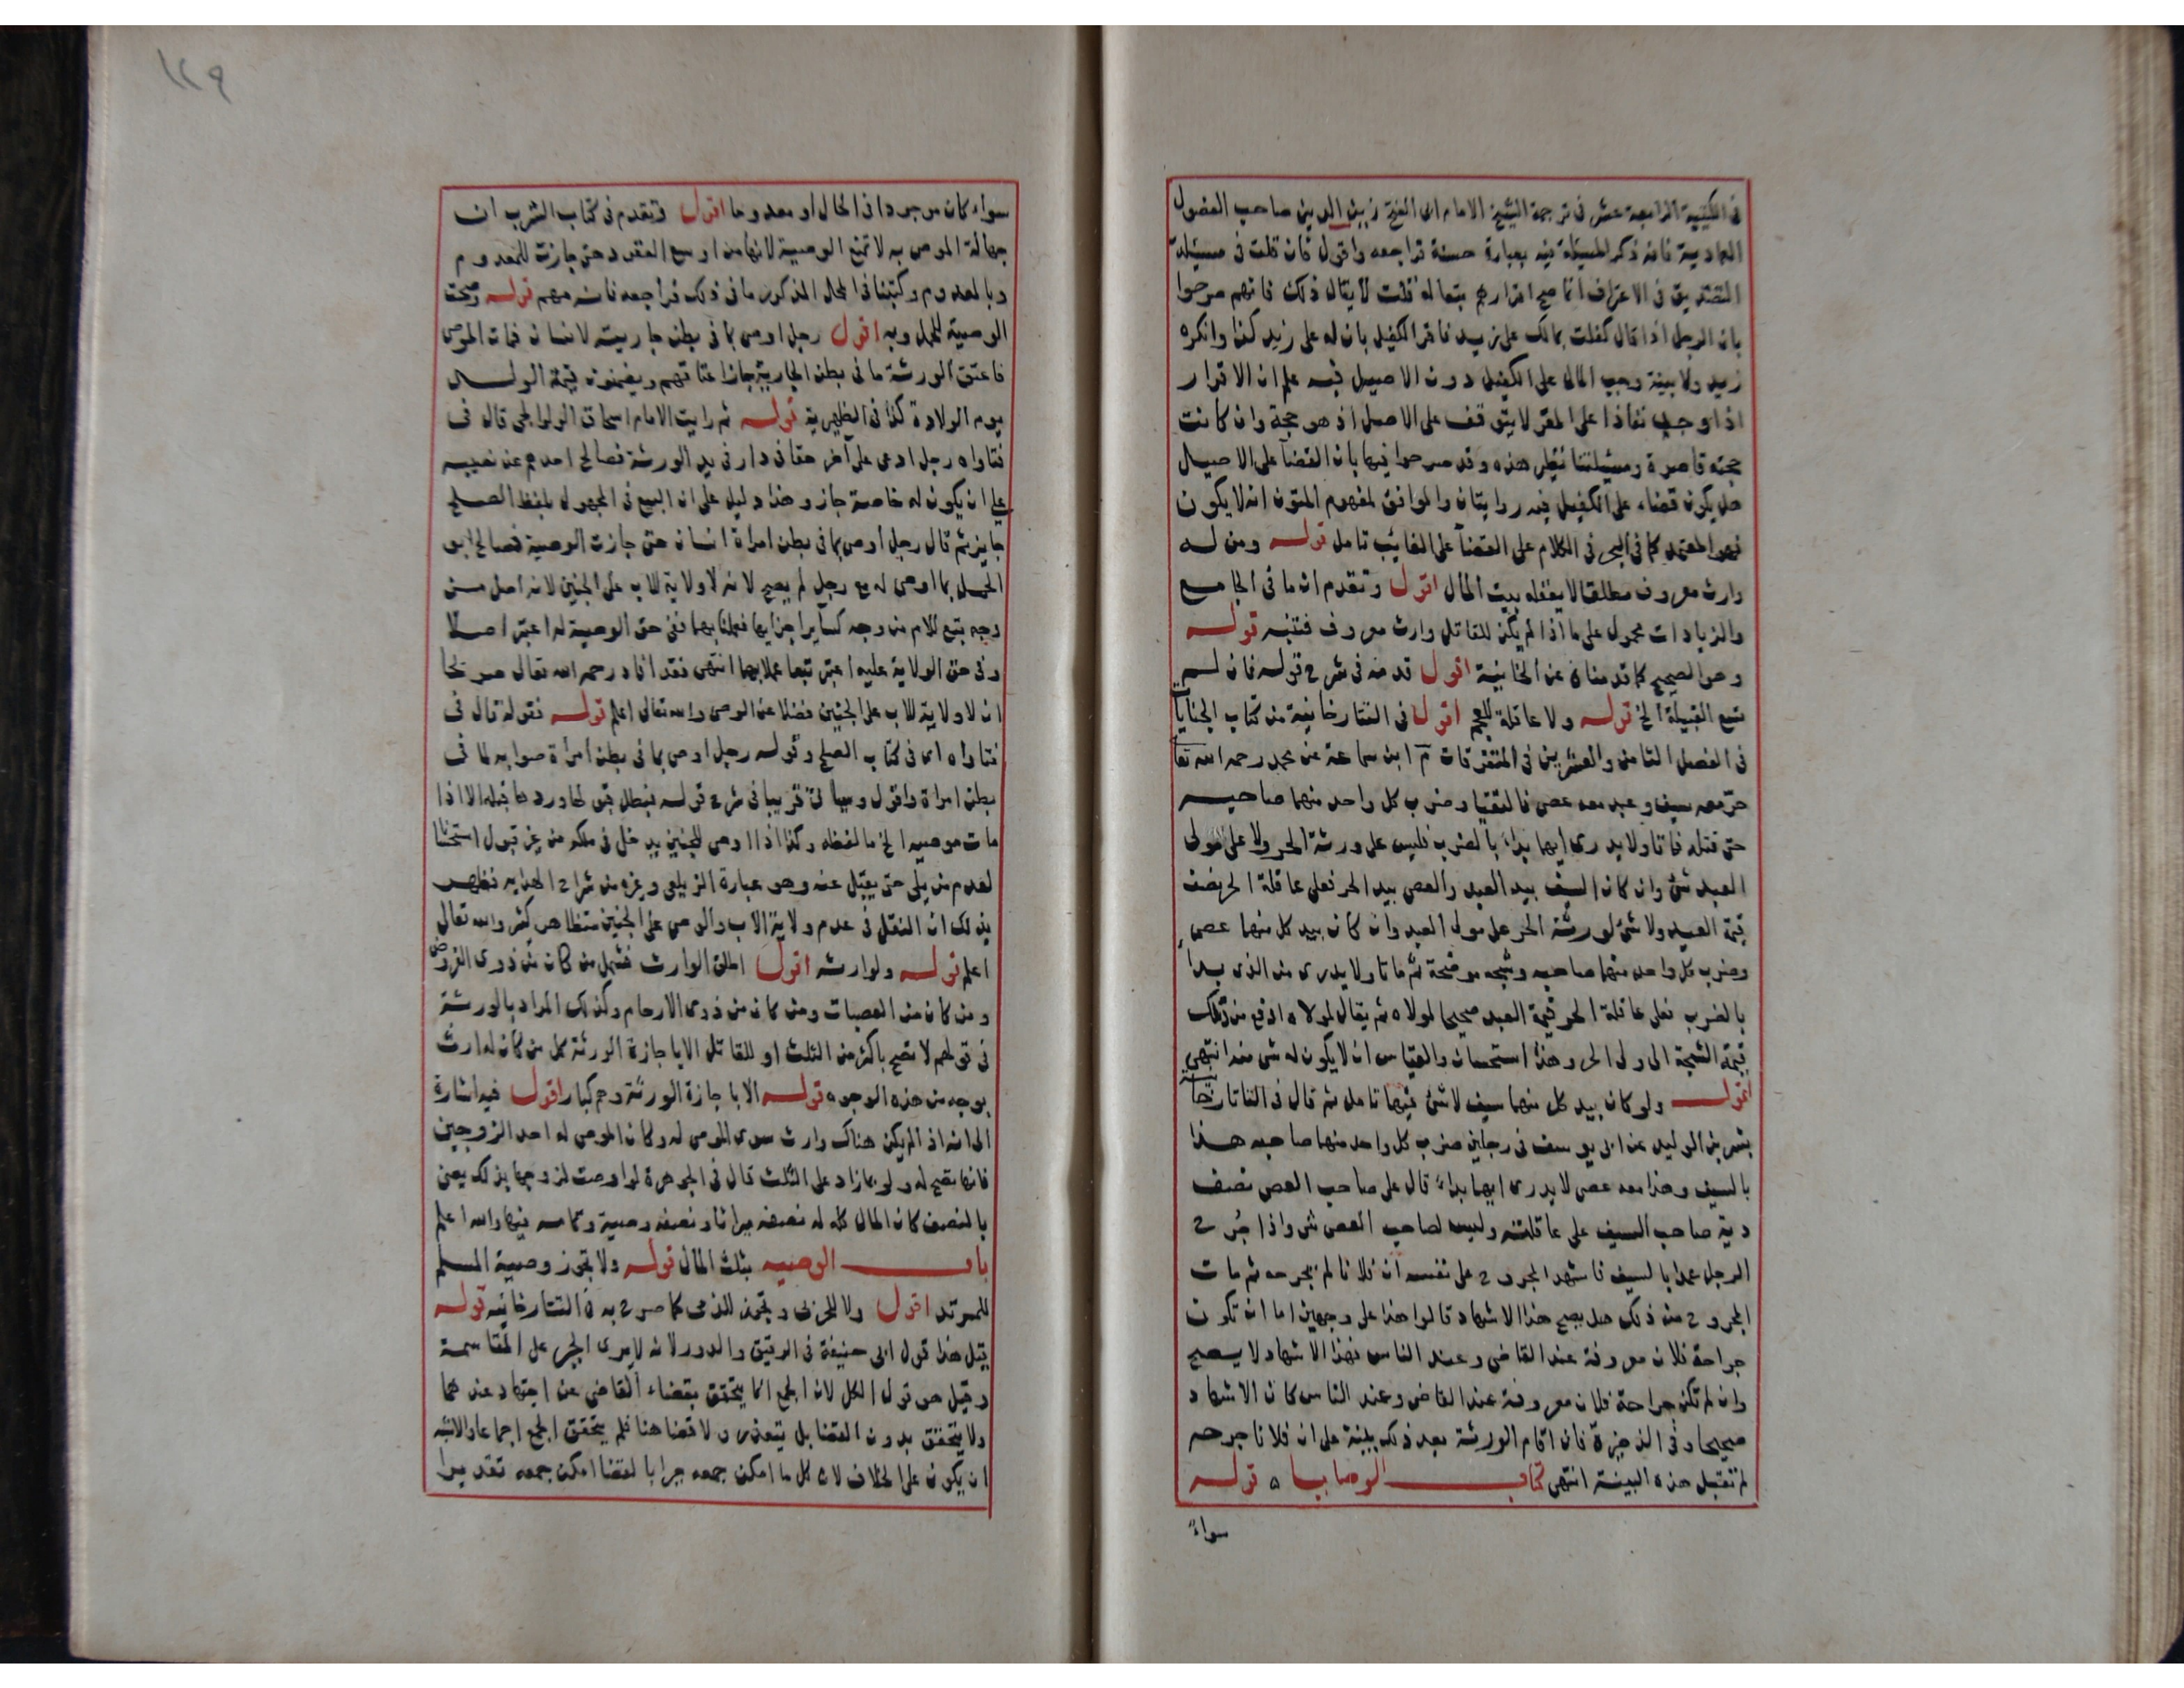 في الكتيبة الرابعة عشر في ترجمة الشيخ الامام ابى الفتح زين الدين صاحب الفضول
العمادية فانه ذكر المسئلة فيه بعبارة حسنة فراجعه واقول فان قلت فى مسئلة
التصديق فى الاعتراف انما صح اقرارهم بتعاله قلت لا يقال ذلك فانهم صرحوا
بان الرجل اذا قال كفلت بمالك على زيد فاقر الكفيل بان له على زيد كذا وانكره
زيد ولا بينة وجب المال على الكفيل دون الاصيل فيه علم ان الاقرار
اذا وجب نفاذا على المقر لا يتوقف على الاصل اذ هو حجة وان كانت
حجته قاصرة ومسئلتنا نظير هذه وقد صرحوا فيها بان القضآ على الاصيل
هل يكون قضاء على الكفيل فيه روايتان والموافق لمفهوم المتون انه لا يكون
فهو المعتمد كما فى البحر فى الكلام على القضآ على الغائب تامل قوله ومن له
وارث معروف مطلقا لا يعقله بيت المال اقول وتقدم ان ما فى الجامع
والزيادات محمول على ما اذا لم يكن للقاتل وارث معروف فتنبه قوله
وهو الصحيح كما قدمناه عن الخانية اقول قدمه فى شرح قوله فان لم
تتسع القبيلة الخ قوله ولا عاقلة للعجم اقول فى التتارخانية من كتاب الجنايا
فى الفصل الثامن والعشرين فى المتفرقات م ابن سماعة عن محمد رحمه الله تعا
حر معه سيف وعبد معه عصى فالتقيا وضرب كل واحد منهما صاحبه
حتى قتله فماتا ولا يدرى ايهما بداء بالضرب فليس على ورثة الحر ولا على مولى
العبد شئ وان كان السيف بيد العبد والعصى بيد الحر فعلى عاقلة الحر نصف
قيمة العبد ولا شئ لورثة الحر على مولى العبد وان كان بيد كل منهما عصى
وضرب كل واحد منهما صاحبه وشجه موضحة ثم ماتا ولا يدرى من الذى بدا
بالضرب فعلى عاقلة الحر قيمة العبد صحيحا لمولاه ثم يقال لمولاه ادفع من ذلك
قيمة الشجة الى ولى الحر وهذا استحسان والقياس ان لا يكون له شئ منه انتهى
اقول ولو كان بيد كل منهما سيف لا شئ فيهما تامل ثم قال فى التاتارخا
بشر بن الوليد عن ابى يوسف فى رجلين ضرب كل واحد منهما صاحبه هذا
بالسيف وهذا معه عصى لا يدرى ايهما بداء قال على صاحب العصى نصف
دية صاحب السيف على عاقلته وليس لصاحب العصى شئ واذا جُرح
الرجل عمدا بالسيف فاشهد المجروح على نفسه ان فلانا لم يجرحه ثم مات
المجروح من ذلك هل يصح هذا الاشهاد قالوا هذا على وجهين اما ان تكون
جراحة فلان معروفة عند القاضى وعند الناس فهذا الاشهاد لا يصح
وان لم تكن جراحة فلان معروفة عند القاضى وعند الناس كان الاشهاد
صحيحا وفى الذخيرة فان اقام الورثة بعد ذلك بينة على ان فلانا جرحه
لم تقبل هذه البينة انتهى كتاب الوصايا ه قوله
سواءً
١٢٩
سواء كان موجودا فى الحال او معدوما اقول وتقدم فى كتاب الشرب ان
جهالة الموصى به لا تمنع الوصية لانها من اوسع العقود حتى جازت للمعدوم
وبالمعدوم وكتبنا فى المحال المذكور ما فى ذلك فراجعه فانه مهم قوله وصحت
الوصية للحمل وبه اقول رجل اوصى بما فى بطن جاريته لانسان فمات الموصى
فاعتق الورثة ما فى بطن الجارية جاز اعتاقهم ويضمنون قيمة الولد
يوم الولادة كذا فى الظهيرية قوله ثم رايت الامام اسحاق الولوالجى قال فى
فتاواه رجل ادعى على آخر حقا فى دار فى يد الورثة فصالح احدهم عن نصيبه
على ان يكون له خاصة جاز وهذا دليل على ان البيع فى المجهول بلفظ الصلح
جايز ثم قال رجل اوصى بما فى بطن امراة انسان حتى جازت الوصية فصالح ابو
الحمل بما اوصى له مع رجل لم يصح لانه لا ولاية للاب على الجنين لانه اصل من
وجه يتبع للام من وجه كسآير اجزايها فعملنا بهما ففى حق الوصية له اعتبر اصلا
وفى حق الولاية عليه اعتبر تبعا عملا بهما انتهى فقد افاد رحمه الله تعالى صريحا
ان لا ولاية للاب على الجنين فضلا عن الوصى والله تعالى اعلم قوله فقوله قال فى
فتاواه اى فى كتاب الصلح وقوله رجل اوصى بما فى بطن امرأة صوابه لما فى
بطن امراة واقول وسياتى قريبا فى شرح قوله فبطل قبولها وردها قبله الا اذا
مات موصيه الخ ما لفظه وكذا اذا اوصى للجنين يدخل فى ملكه من غير قبول استحسانا
لعدم من يلى حتى يقبل عنه وهو عبارة الزيلعى وغيره من شراح الهدايه فظهر
بذلك ان النقل فى عدم ولاية الاب والوصى على الجنين متظاهر كثير والله تعالى
اعلم قوله ولوارثه اقول اطلق الوارث فشمل من كان من ذوى الفروض
ومن كان من العصبات ومن كان من ذوى الارحام وكذلك المراد بالورثة
فى قولهم لا تصح باكثر من الثلث او للقاتل الا باجازة الورثة كل من كان له ارث
بوجه من هذه الوجوه قوله الا باجازة الورثة وهم كبار اقول فيه اشارة
الى انه اذ الم يكن هناك وارث سوى الموصى له وكان الموصى له احد الزوجين
فانها تصح له ولو بما زاد على الثلث قال فى الجوهرة لو اوصت لزوجها بذلك يعنى
بالنصف كان المال كله له نصفه ميراثا ونصفه وصية وتمامه فيها والله اعلم
باب الوصيه بثلث المال قوله ولا تجوز وصية المسلم
للمرتد اقول ولا للحربى وتجوز للذمى كما صرح به فى التتارخانيه قوله
قيل هذا قول ابى حنيفة فى الرقيق والدور لانه لا يرى الجبر على المقاسمة
وقيل هو قول الكل لان الجمع انما يتحقق بقضاء القاضى عن اجتهاد عندهما
ولا يتحقق بدون القضا بل يتعذر ولا قضا هنا فلم يتحقق الجمع اجماعا والاشبه
ان يكون على الخلاف لان كل ما امكن جمعه جبرا بالقضا امكن جمعه تقديرا